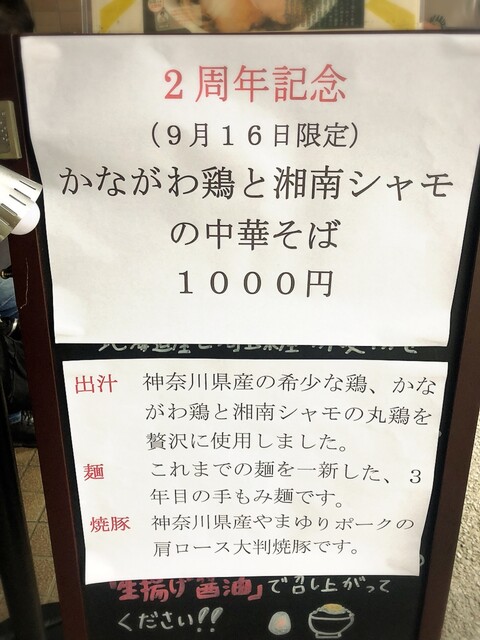 ２周年記念
（９月１６日限定）
かながわ鶏と湘南シャモ
の中華そば
１０００円
出汁　神奈川県産の希少な鶏、かな
がわ鶏と湘南シャモの丸鶏を
贅沢に使用しました。
麺　これまでの麺を一新した、３
年目の手もみ麺です。
焼豚　神奈川県産やまゆりポークの
肩ロース大判焼豚です。
「生揚げ醤油」で召し上がって
ください!!